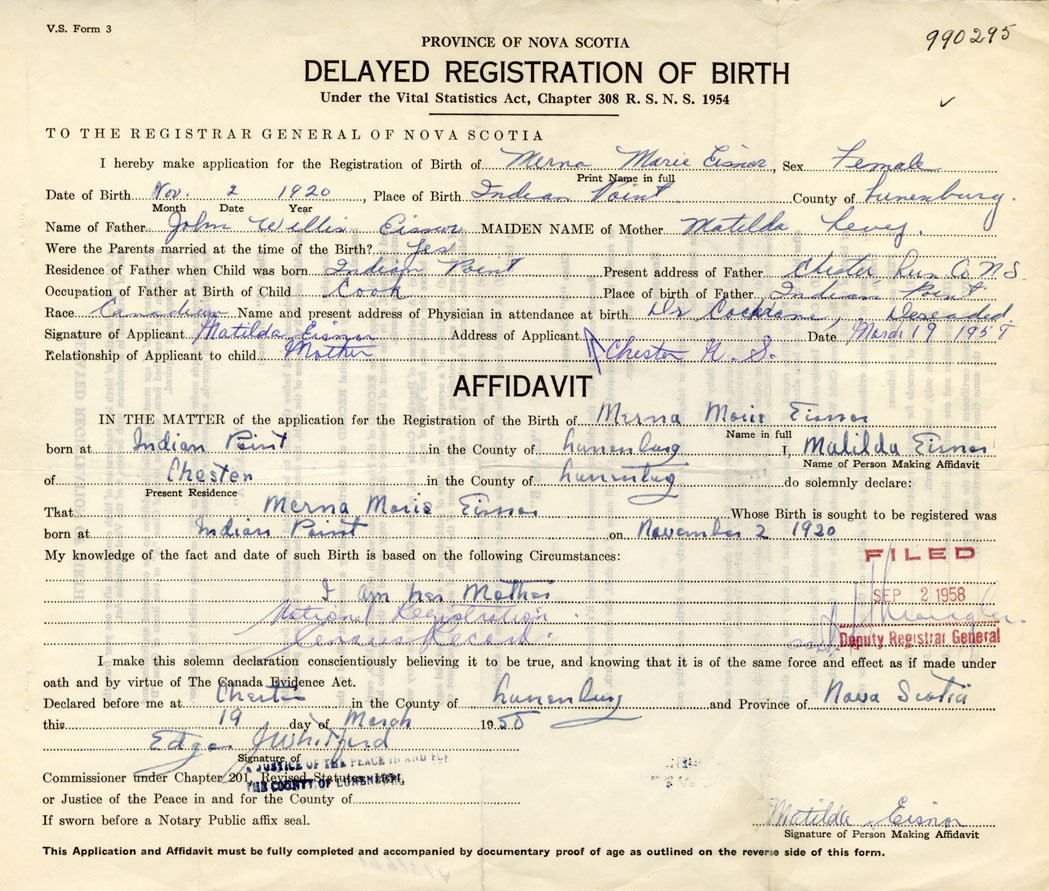 V.S. Form 3
990295
PROVINCE OF NOVA SCOTIA
DELAYED REGISTRATION OF BIRTH
Under the Vital Statistics Act, Chapter 308 R. S. N. S. 1954
TO THE REGISTRAR GENERAL OF NOVA SCOTIA
I hereby make application for the Registration of Birth of Merna Marie Eisnor, Sex Female
Print Name in full
Date of Birth Nov. 2 1920, Place of Birth Indian Point County of Lunenburg.
Month Date Year
Name of Father John Willis Eisnor MAIDEN NAME of Mother Matilda Levy.
Were the Parents married at the time of the Birth? Yes
Residence of Father when Child was born Indian Point Present address of Father Chester Lun Co N.S.
Occupation of Father at Birth of Child Cook Place of birth of Father Indian Point
Race Canadian Name and present address of Physician in attendance at birth Dr Cochrane, Deseaded
Signature of Applicant Matilda Eisnor Address of Applicant Date March 19 1958
Relationship of Applicant to child Mother Chester N. S.
AFFIDAVIT
IN THE MATTER of the application for the Registration of the Birth of Merna Marie Eisnor
Name in full
born at Indian Point in the County of Lunenburg I, Matilda Eisnor
Name of Person Making Affidavit
of Chester in the County of Lunenburg do solemnly declare:
Present Residence
That Merna Marie Eisnor Whose Birth is sought to be registered was
born at Indian Point on November 2 1920
My knowledge of the fact and date of such Birth is based on the following Circumstances:
FILED
I am her Mother
SEP 2 1958
National Registration
Census Record.
Deputy Registrar General
I make this solemn declaration conscientiously believing it to be true, and knowing that it is of the same force and effect as if made under
oath and by virtue of The Canada Evidence Act.
Declared before me at Chester in the County of Lunenburg and Province of Nova Scotia
this 19 day of March 1958
Edgar J Whitford
Signature of
A JUSTICE OF THE PEACE IN AND FOR
Commissioner under Chapter 201, Revised Statutes 1954,
THE COUNTY OF LUNENBURG,
or Justice of the Peace in and for the County of
If sworn before a Notary Public affix seal.
Matilda Eisnor
Signature of Person Making Affidavit
This Application and Affidavit must be fully completed and accompanied by documentary proof of age as outlined on the reverse side of this form.